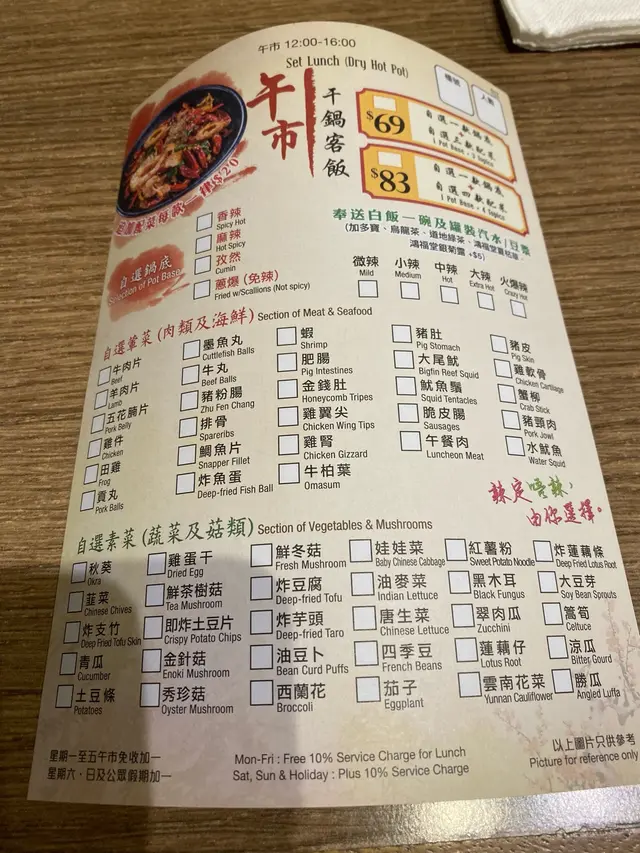 午市 12:00-16:00
Set Lunch (Dry Hot Pot)
午市
干鍋客飯
人數
$69
自選一款鍋底
+
自選三款配菜
1 Pot Base + 3 Topics
$83
自選一款鍋底
+
自選四款配菜
1 Pot Base + 4 Topics
配菜每款一律$20
奉送白飯一碗及罐裝汽水/豆漿
自選鍋底
Selection of Pot Base
香辣
Spicy Hot
麻辣
Hot Spicy
孜然
Cumin
蔥爆 (免辣)
Fried w/Scallions (Not spicy)
微辣 小辣 中辣 大辣 火爆辣
Mild Medium Hot Extra Hot Crazy Hot
自選葷菜 (肉類及海鮮) Section of Meat & Seafood
牛肉片
Beef
羊肉片
Lamb
五花腩片
Pork Belly
雞件
Chicken
田雞
Frog
貢丸
Pork Balls
墨魚丸
Cuttlefish Balls
牛丸
Beef Balls
豬粉腸
Zhu Fen Chang
排骨
Spareribs
鯛魚片
Snapper Fillet
炸魚蛋
Deep-fried Fish Ball
蝦
Shrimp
肥腸
Pig Intestines
金錢肚
Honeycomb Tripes
雞翼尖
Chicken Wing Tips
雞腎
Chicken Gizzard
牛柏葉
Omasum
豬肚
Pig Stomach
大尾魷
Bigfin Reef Squid
魷魚鬚
Squid Tentacles
脆皮腸
Sausages
午餐肉
Luncheon Meat
豬皮
Pig Skin
雞軟骨
Chicken Cartilage
蟹柳
Crab Stick
豬頸肉
Pork Jowl
水魷魚
Water Squid
辣定唔辣,
由你選擇。
自選素菜 (蔬菜及菇類) Section of Vegetables & Mushrooms
秋葵
Okra
韮菜
Chinese Chives
炸支竹
Deep-fried Tofu Skin
青瓜
Cucumber
土豆條
Potatoes
雞蛋干
Dried Egg
鮮茶樹菇
Tea Mushroom
即炸土豆片
Crispy Potato Chips
金針菇
Enoki Mushroom
秀珍菇
Oyster Mushroom
鮮冬菇
Fresh Mushroom
炸豆腐
Deep-fried Tofu
炸芋頭
Deep-fried Taro
油豆卜
Bean Curd Puffs
西蘭花
Broccoli
娃娃菜
Baby Chinese Cabbage
油麥菜
Indian Lettuce
唐生菜
Chinese Lettuce
四季豆
French Beans
茄子
Eggplant
紅薯粉
Sweet Potato Noodle
黑木耳
Black Fungus
翠肉瓜
Zucchini
蓮藕仔
Lotus Root
雲南花菜
Yunnan Cauliflower
炸蓮藕條
Deep Fried Lotus Root
大豆芽
Soy Bean Sprouts
萵筍
Celtuce
涼瓜
Bitter Gourd
勝瓜
Angled Luffa
星期一至五午市免收加一
星期六,日及公眾假期加一
Mon-Fri : Free 10% Service Charge for Lunch
Sat, Sun & Holiday : Plus 10% Service Charge
以上圖片只供參考
Picture for reference only